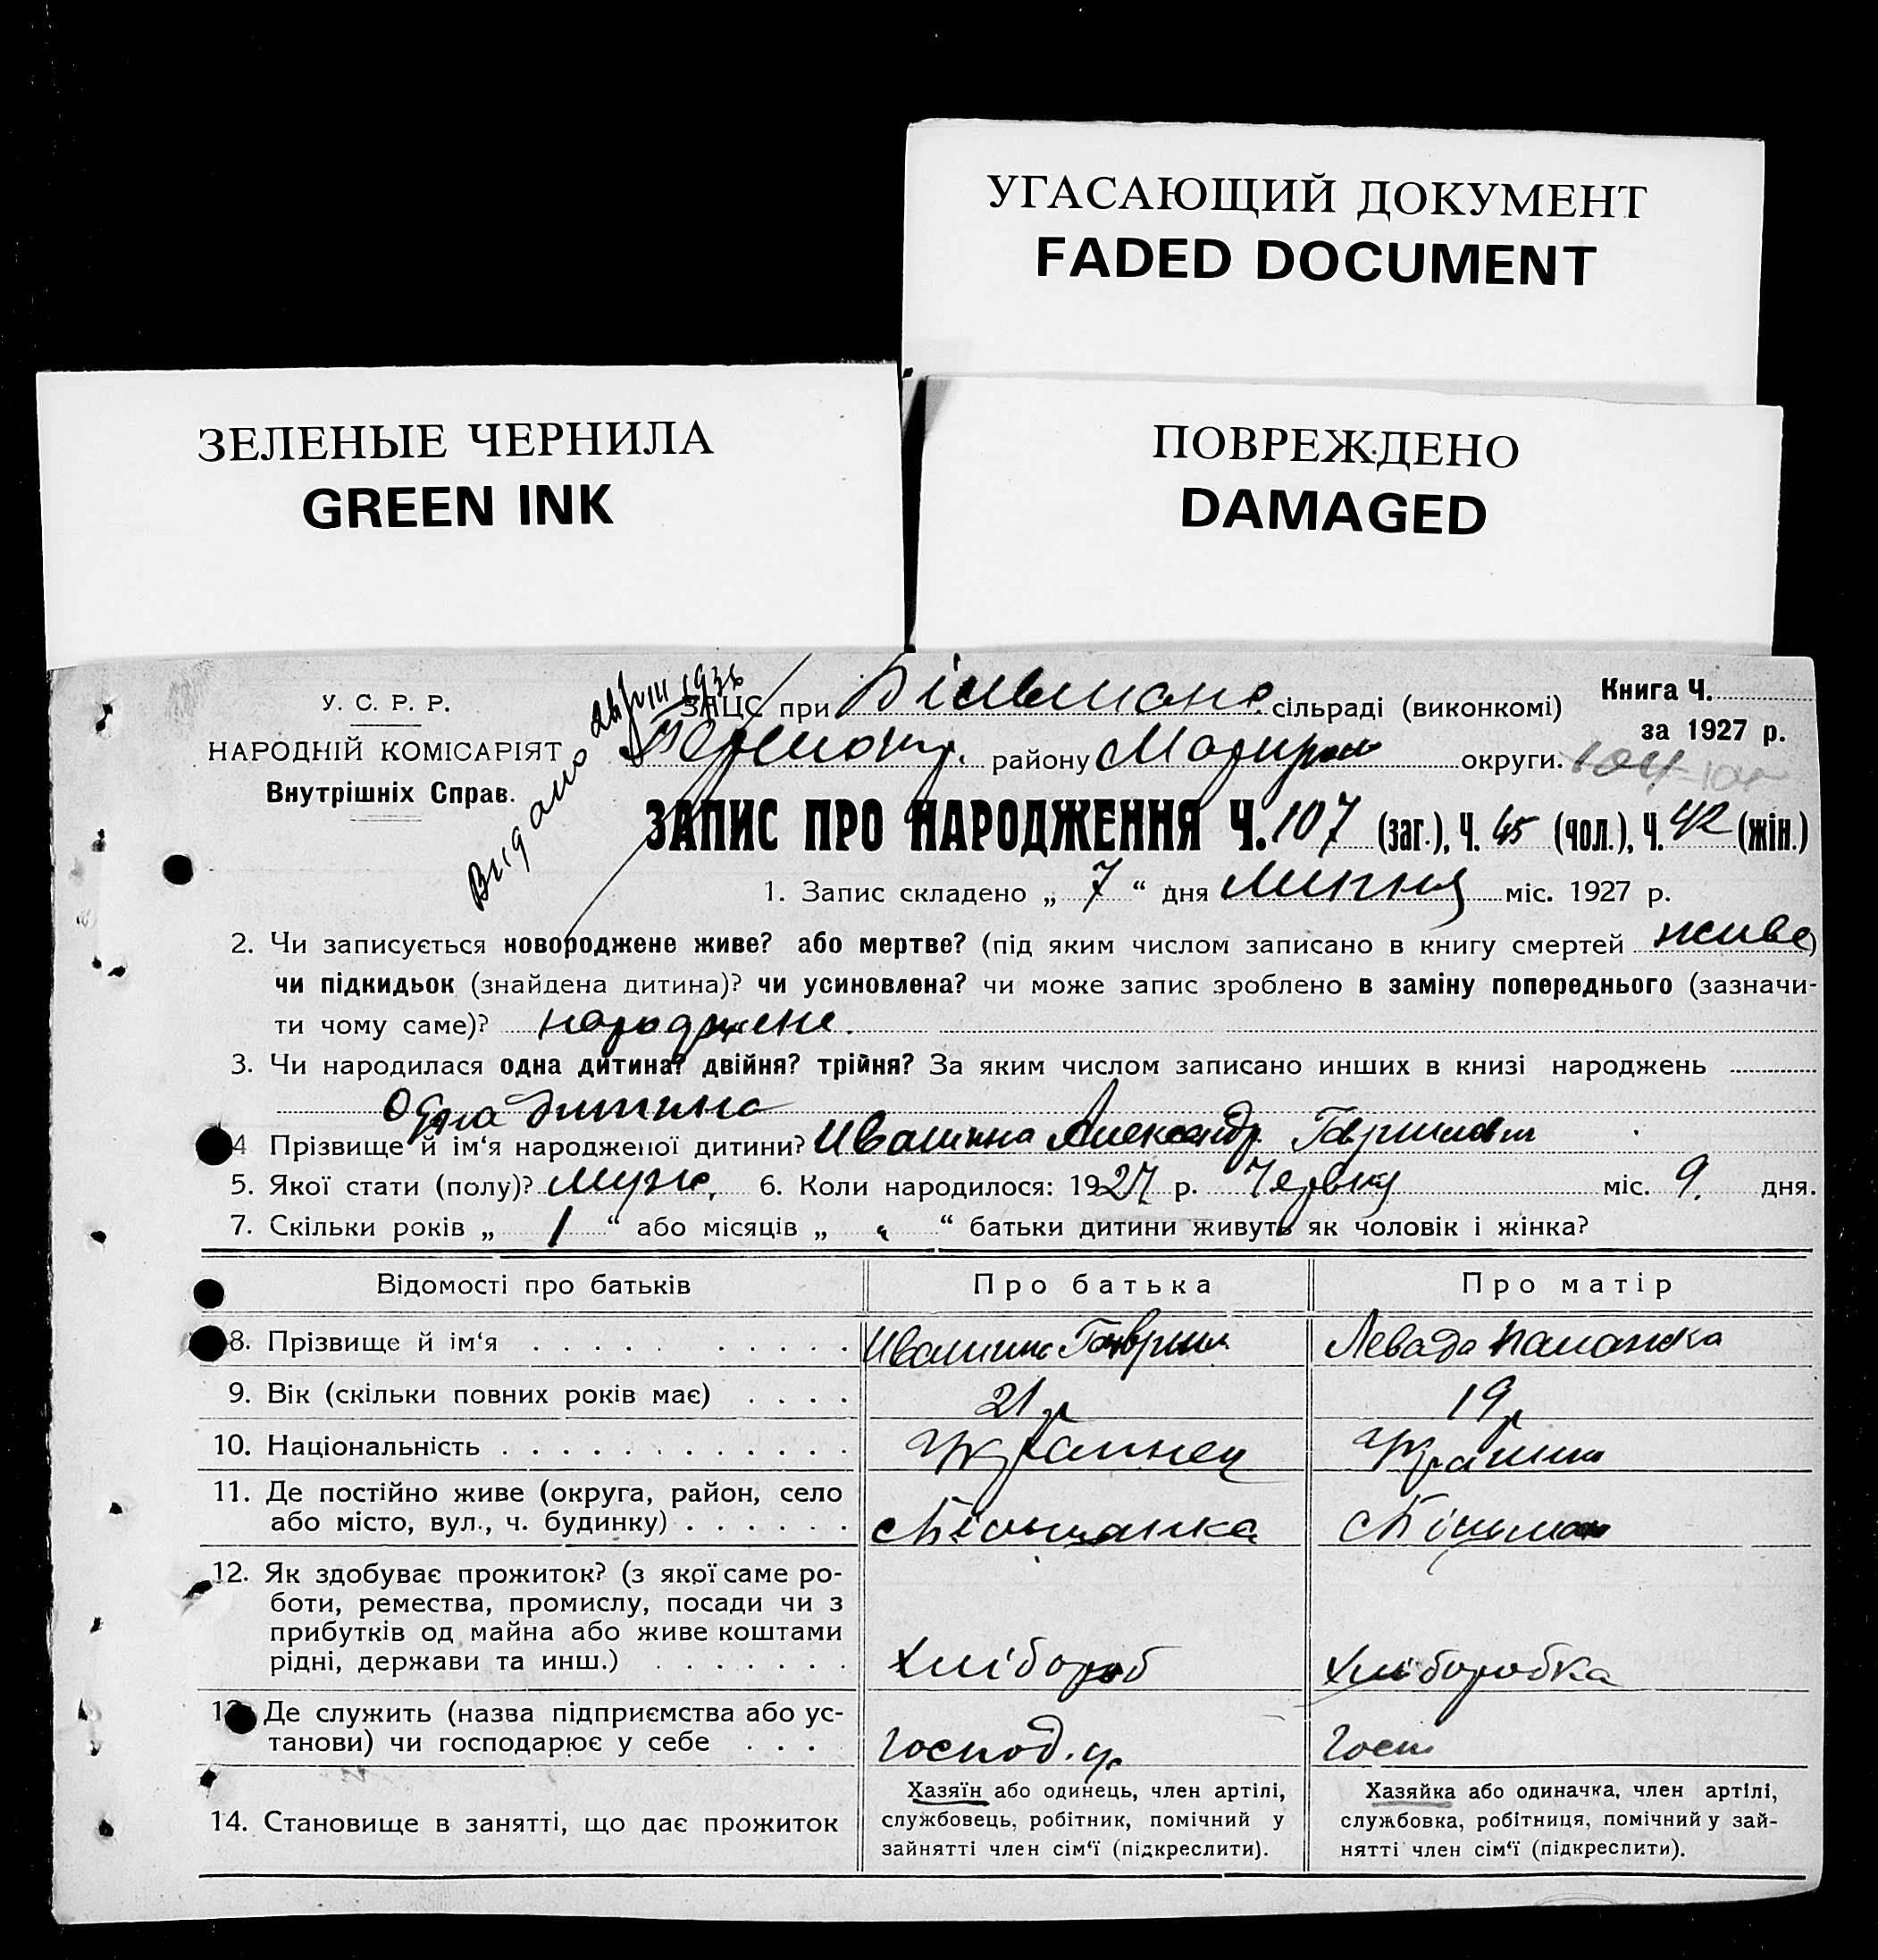 УГАСАЮЩИЙ ДОКУМЕНТ
FADED DOCUMENT
ЗЕЛЕНЫЕ ЧЕРНИЛА
GREEN INK
ПОВРЕЖДЕНО
DAMAGED
У. С. Р. Р.
НАРОДНІЙ КОМІСАРІЯТ
Внутрішніх Справ.
ЗАЦС при сільраді (виконкомі)
Книга Ч.
за 1927 р.
району округи.
ЗАПИС ПРО НАРОДЖЕННЯ Ч. 107 (заг.), Ч. 65 (чол.), Ч. 42 (жін.)
1. Запис складено „ 7 “ дня Липня міс. 1927 р.
2. Чи записується новороджене живе? або мертве? (під яким числом записано в книгу смертей живе)
чи підкидьок (знайдена дитина)? чи усиновлена? чи може запис зроблено в заміну попереднього (зазначи-
ти чому саме)? народжене.
3. Чи народилася одна дитина? двійня? трійня? За яким числом записано инших в книзі народжень
Одна дитина
4 Прізвище й ім‘я народженої дитини? Ивашина Александр
5. Якої стати (полу)? муж. 6. Коли народилося: 1927 р. Червня міс. 9. дня.
7. Скільки років „ 1 “ або місяців „ “ батьки дитини живуть як чоловік і жінка?
Відомості про батьків Про батька Про матір
8. Прізвище й ім‘я Ивашина Гаврил Левада
9. Вік (скільки повних років має) 21 р 19 р
10. Національність Украинец
11. Де постійно живе (округа, район, село
або місто, вул., ч. будинку)
12. Як здобуває прожиток? (з якої саме ро-
боти, ремества, промислу, посади чи з
прибутків од майна або живе коштами
рідні, держави та инш.) Хлібороб Хліборобка
13. Де служить (назва підприємства або ус-
танови) чи господарює у себе
14. Становище в занятті, що дає прожиток
Хазяїн або одинець, член артілі,
службовець, робітник, помічний у
зайнятті член сім‘ї (підкреслити).
Хазяйка або одиначка, член артілі,
службовка, робітниця, помічний у зай-
нятті член сім‘ї (підкреслити).